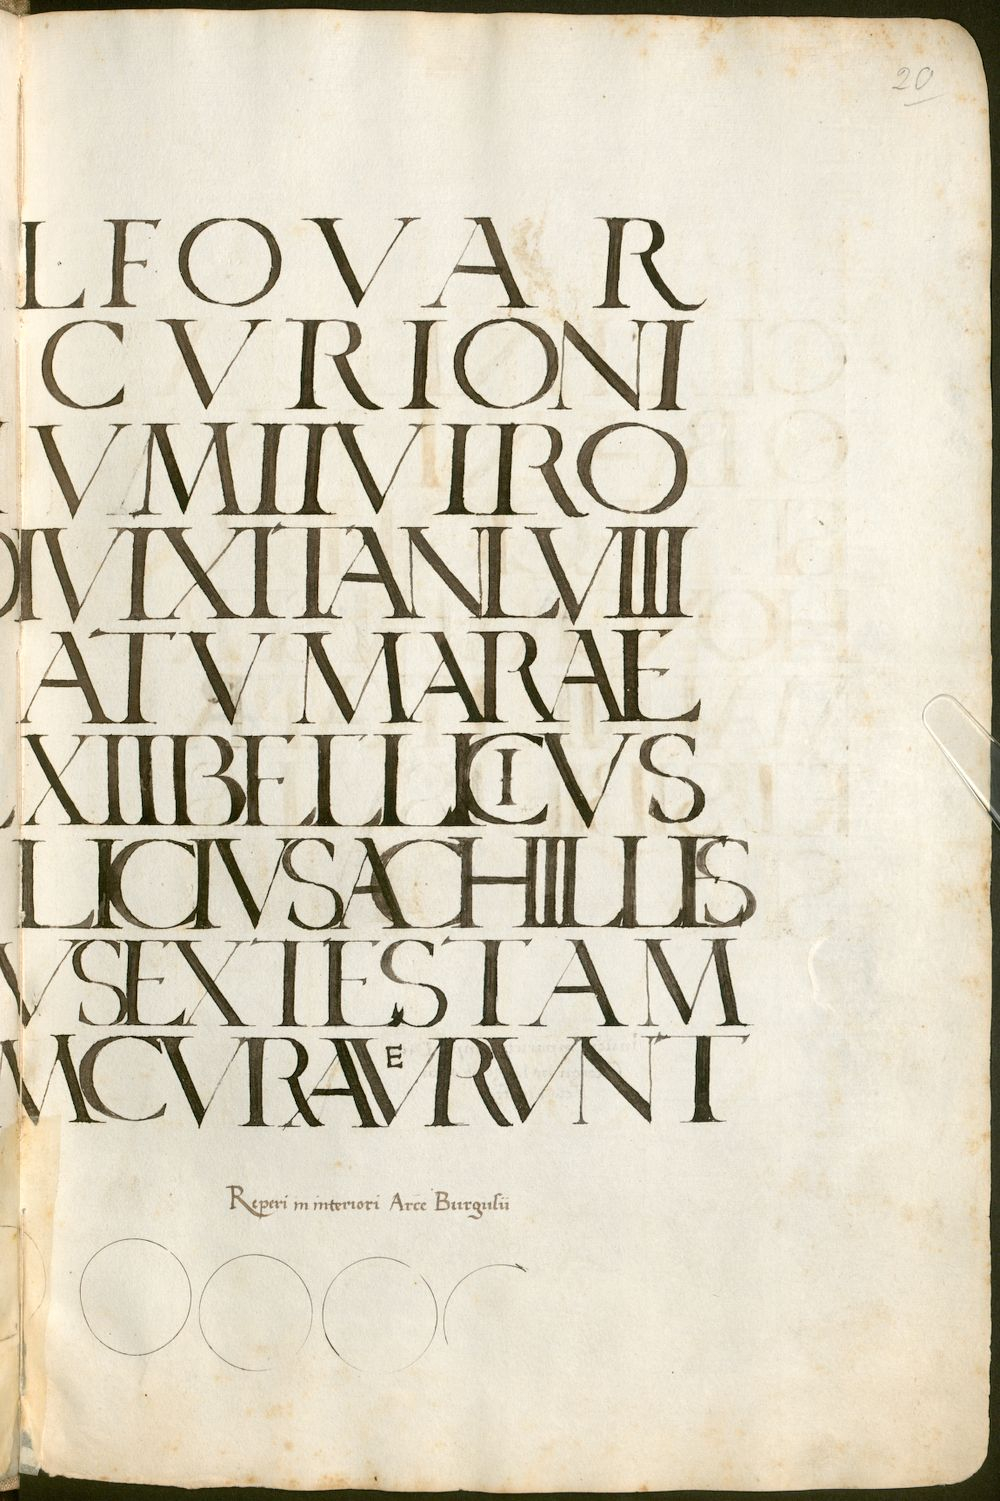 20
LFOVAR
CVRIONI
VMIIVIRO
IVIXITANLVIIII
ATVMARAE
XIIIBELLICIVS
LICIVSACHILLES
VSEXTESTAM
MCVRAVERVNT
Reperi in interiori Arce Burgulii